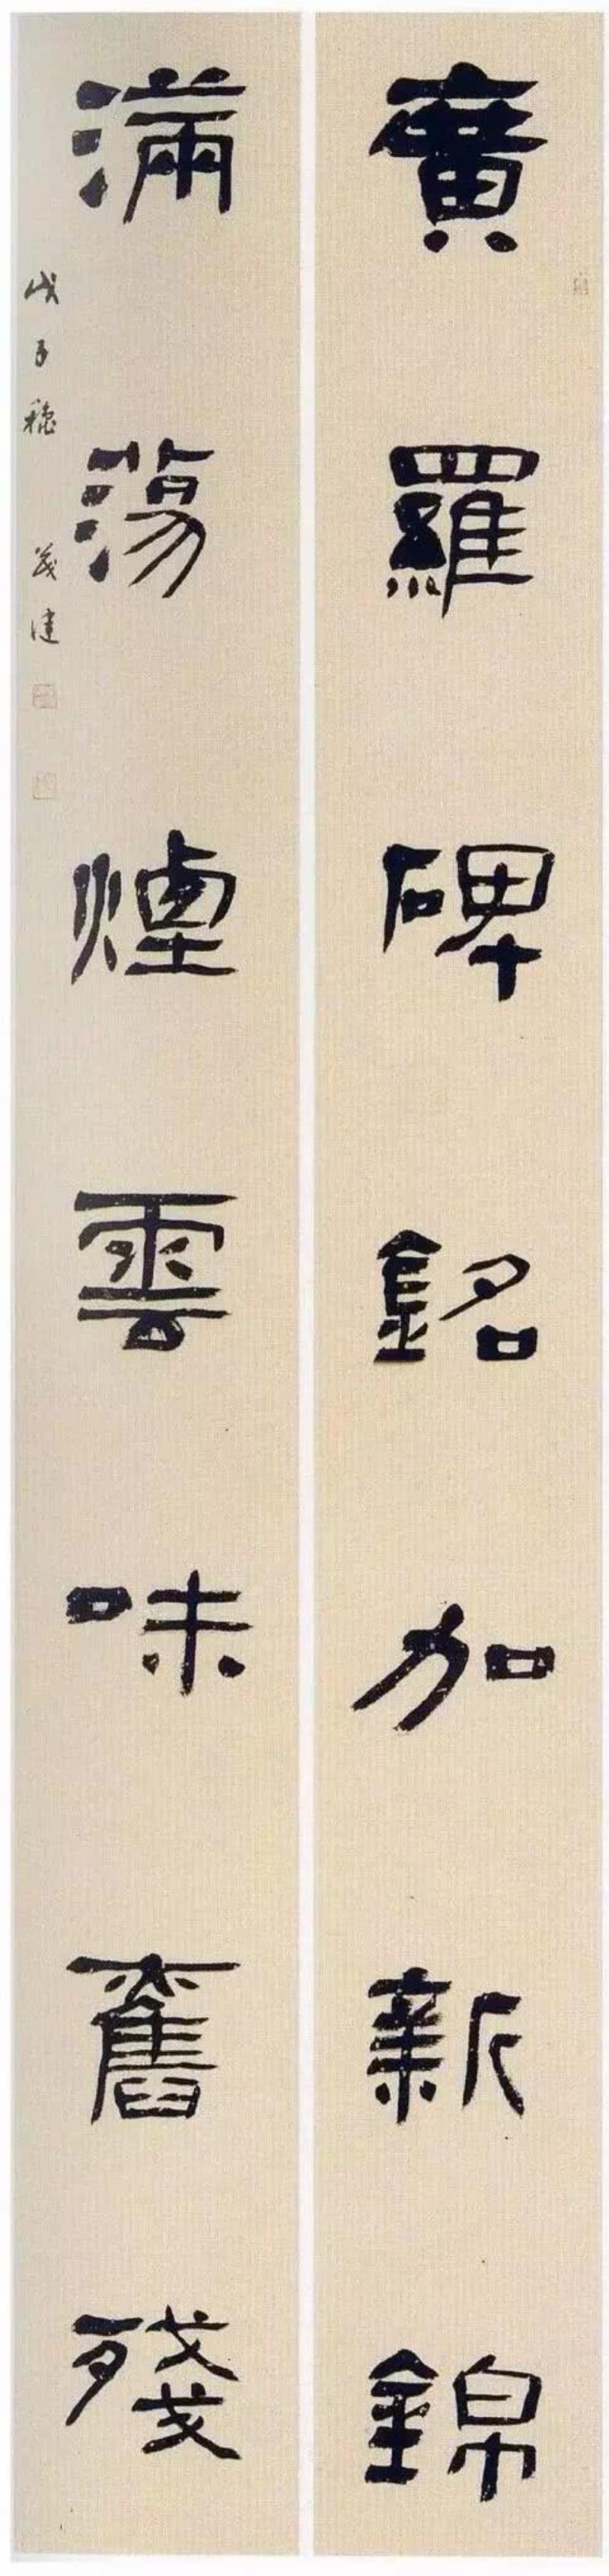 廣羅碑銘加新錦
滿蕩煙雲味舊殘
戊子秋 茂建